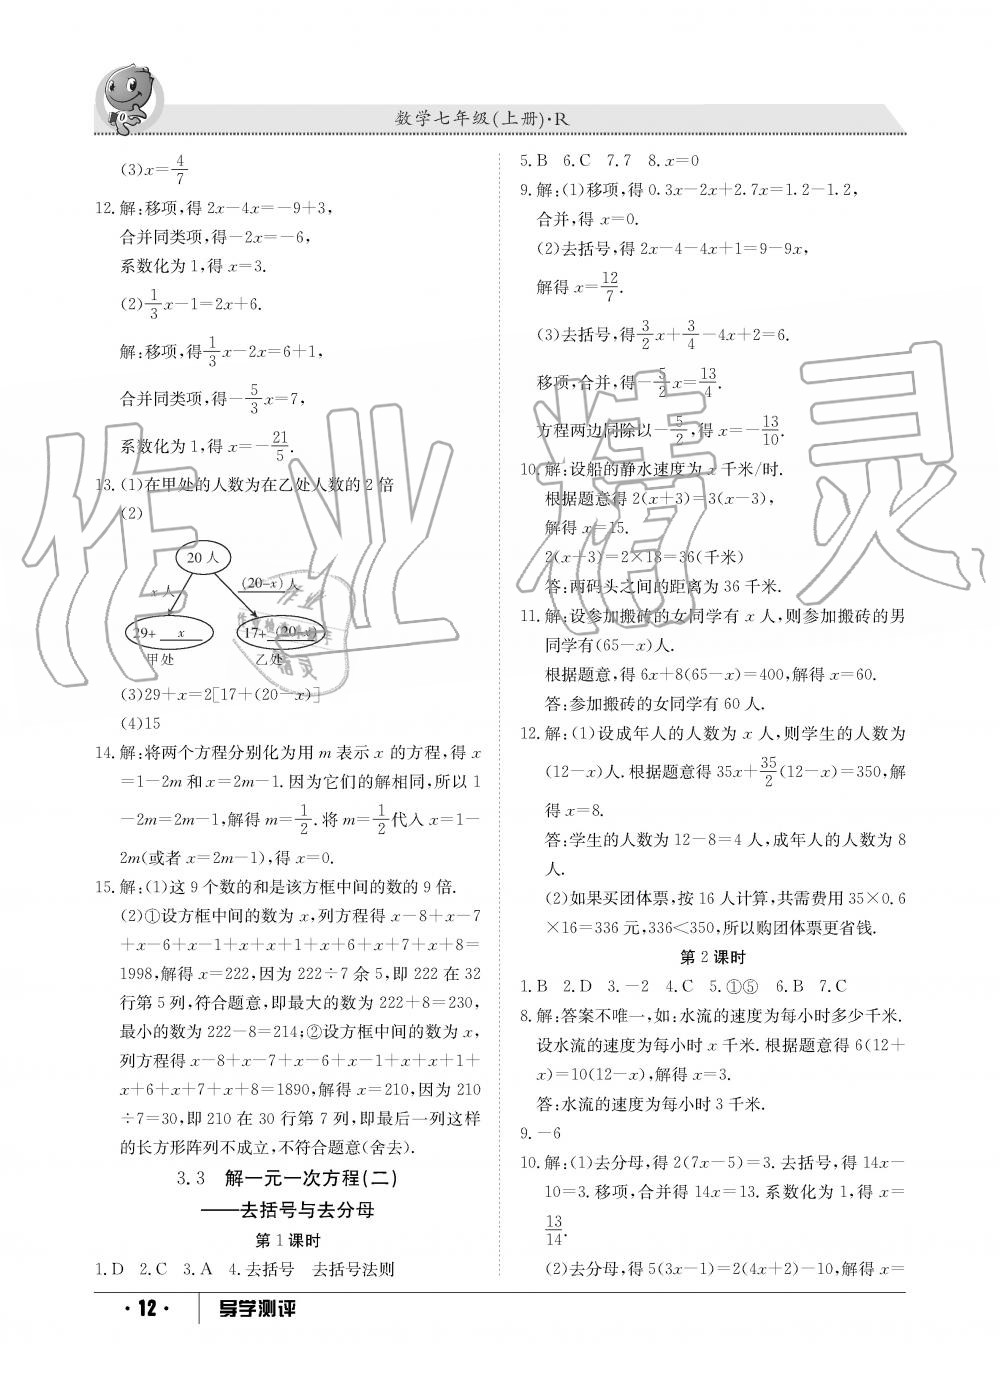 数学七年级(上册)·R
(3)x=4/7
12.解:移项,得 2x-4x=-9+3,
合并同类项,得-2x=-6,
系数化为1,得 x=3.
(2)1/3x-1=2x+6.
解:移项,得1/3x-2x=6+1,
合并同类项,得-5/3x=7,
系数化为1,得 x=-21/5.
13.(1)在甲处的人数为在乙处人数的2倍
(2)
20人
x人
(20-x)人
29+ x
17+ (20-x)
甲处
乙处
(3)29+x=2[17+(20-x)]
(4)15
14.解:将两个方程分别化为用 m 表示 x 的方程,得 x
=1-2m 和 x=2m-1.因为它们的解相同,所以 1
-2m=2m-1,解得 m=1/2.将 m=1/2代入 x=1-
2m(或者 x=2m-1),得 x=0.
15.解:(1)这9个数的和是该方框中间的数的9倍.
(2)①设方框中间的数为 x,列方程得 x-8+x-7
+x-6+x-1+x+x+1+x+6+x+7+x+8=
1998,解得 x=222,因为 222÷7 余 5,即 222 在 32
行第5列,符合题意,即最大的数为 222+8=230,
最小的数为 222-8=214;②设方框中间的数为 x,
列方程得 x-8+x-7+x-6+x-1+x+x+1+
x+6+x+7+x+8=1890,解得 x=210,因为 210
÷7=30,即 210 在 30 行第 7 列,即最后一列这样
的长方形阵列不成立,不符合题意(舍去).
3.3 解一元一次方程(二)
——去括号与去分母
第1课时
1.D 2.C 3.A 4.去括号 去括号法则
5.B 6.C 7.7 8.x=0
9.解:(1)移项,得 0.3x-2x+2.7x=1.2-1.2,
合并,得 x=0.
(2)去括号,得 2x-4-4x+1=9-9x,
解得 x=12/7.
(3)去括号,得3/2x+3/4-4x+2=6.
移项,合并,得-5/2x=13/4.
方程两边同除以-5/2,得 x=-13/10.
10.解:设船的静水速度为 x 千米/时.
根据题意得 2(x+3)=3(x-3),
解得 x=15.
2(x+3)=2×18=36(千米)
答:两码头之间的距离为 36 千米.
11.解:设参加搬砖的女同学有 x 人,则参加搬砖的男
同学有(65-x)人.
根据题意,得 6x+8(65-x)=400,解得 x=60.
答:参加搬砖的女同学有 60 人.
12.解:(1)设成年人的人数为 x 人,则学生的人数为
(12-x)人.根据题意得 35x+35/2(12-x)=350,解
得 x=8.
答:学生的人数为 12-8=4 人,成年人的人数为 8
人.
(2)如果买团体票,按 16 人计算,共需费用 35×0.6
×16=336 元,336<350,所以购团体票更省钱.
第2课时
1.B 2.D 3.-2 4.C 5.①⑤ 6.B 7.C
8.解:答案不唯一,如:水流的速度为每小时多少千米.
设水流的速度为每小时 x 千米.根据题意得 6(12+
x)=10(12-x),解得 x=3.
答:水流的速度为每小时 3 千米.
9.-6
10.解:(1)去分母,得 2(7x-5)=3.去括号,得 14x-
10=3.移项,合并得 14x=13.系数化为 1,得 x=
13/14.
(2)去分母,得 5(3x-1)=2(4x+2)-10,解得 x=
·12· 导学测评
作业精灵